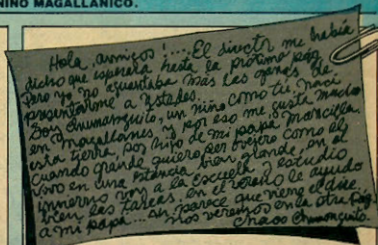 NIÑO MAGALLANICO.
Hola, amigos!... El director me había
dicho que esperara hasta la próxima pág.
Pero yo no aguantaba más las ganas de
presentarme a ustedes.
Soy Chumanguito, un niño como tú, nací
en Magallanes y por eso me gusta mucho
esta tierra. Soy hijo de mi papá
cuando grande quiero ser ovejero como él,
vivo en una estancia bien grande, en el
invierno voy a la escuela y estudio
bien las tareas, en el verano le ayudo
a mi papá... parece que viene el dire.
nos veremos en la otra pág.
Chaoo Chumanguito.